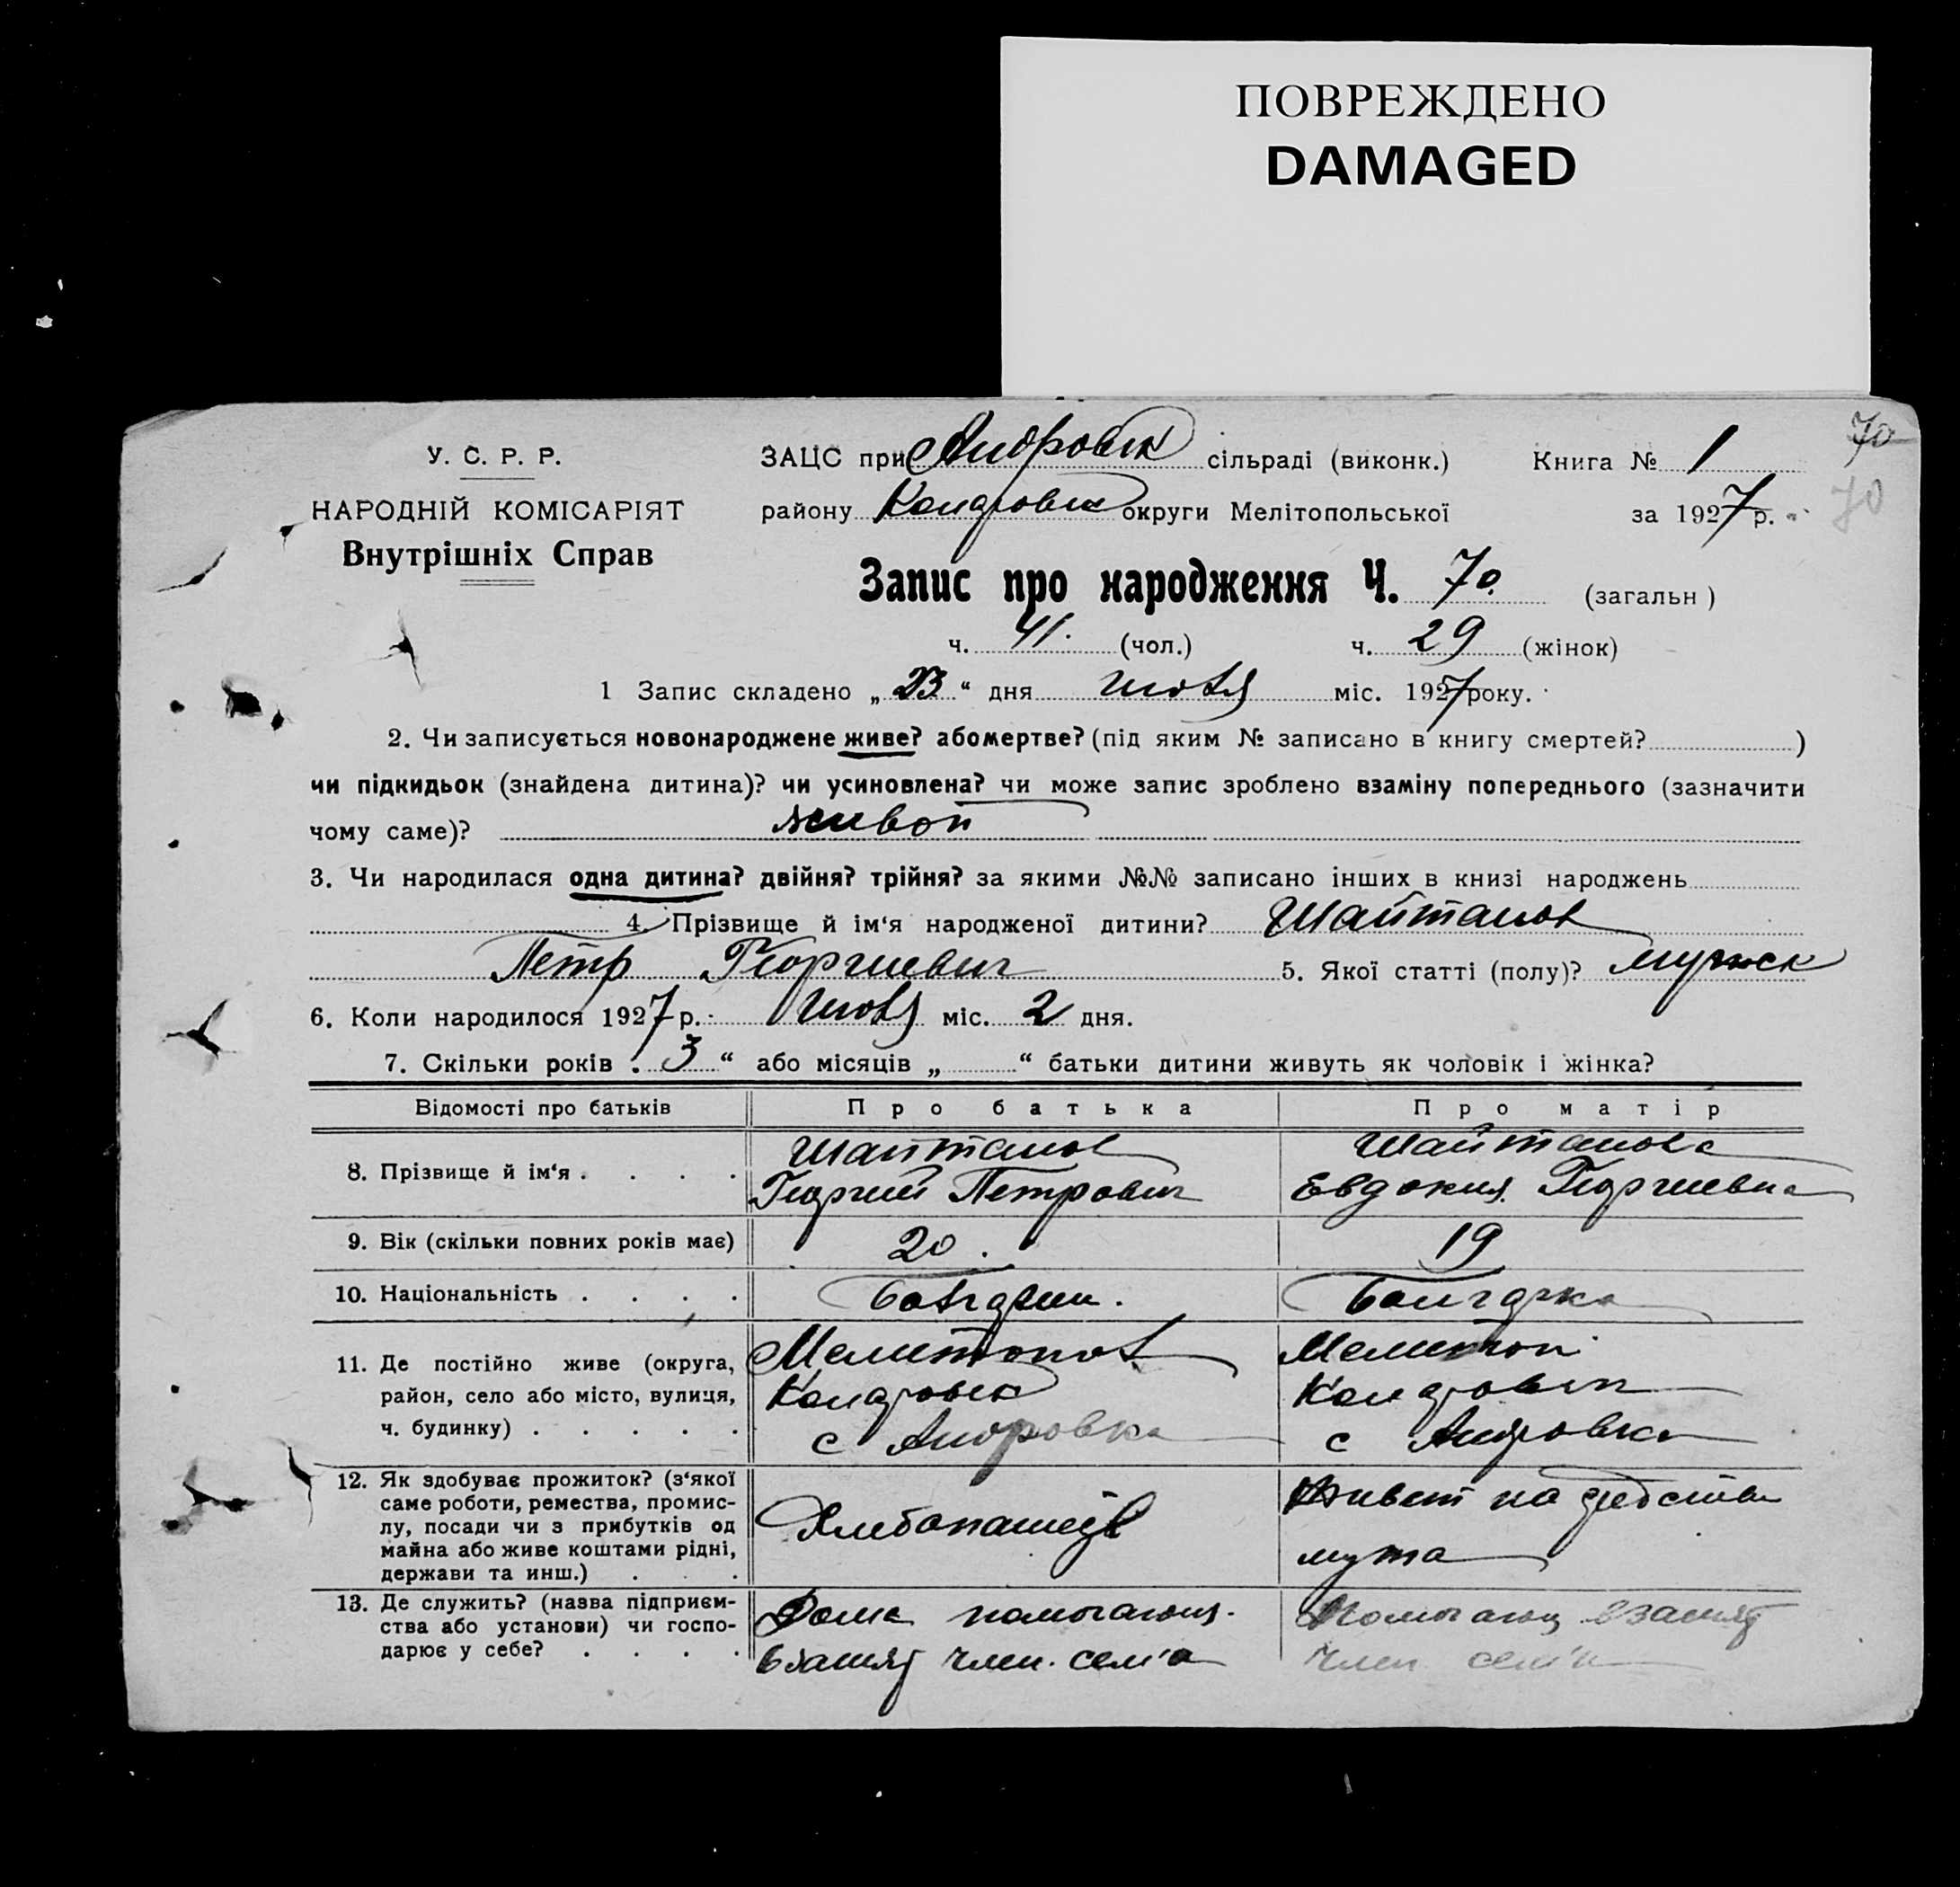 ПОВРЕЖДЕНО
DAMAGED
70
70
У. С. Р. Р.
НАРОДНІЙ КОМІСАРІЯТ
Внутрішніх Справ
ЗАЦС при Андровск сільраді (виконк.) Книга № 1
району округи Мелітопольської за 1927 р.
Запис про народження Ч. 70. (загальн)
ч. 41. (чол.) ч. 29 (жінок)
1 Запис складено „23“ дня июля міс. 1927 року.
2. Чи записується новонароджене живе? або мертве? (під яким № записано в книгу смертей? )
чи підкидьок (знайдена дитина)? чи усиновлена? чи може запис зроблено взаміну попереднього (зазначити
чому саме)? живой
3. Чи народилася одна дитина? двійня? трійня? за якими №№ записано інших в книзі народжень
4. Прізвище й ім‘я народженої дитини? Шайтанов
Петр Георгиевич 5. Якої статті (полу)? мужск
6. Коли народилося 1927 р. июля міс. 2 дня.
7. Скільки років „3“ або місяців „ “ батьки дитини живуть як чоловік і жінка?
Відомості про батьків Про батька Про матір
8. Прізвище й ім‘я . . . . Шайтанов Георгий Петрович Шайтанова Евдокия Георгиевна
9. Вік (скільки повних років має) 20. 19
10. Національність . . . . Болгарин. Болгарка
11. Де постійно живе (округа, Мелитопол Мелитоп
район, село або місто, вулиця,
ч. будинку) . . . . . с Андровка с Андровка
12. Як здобуває прожиток? (з‘якої
саме роботи, ремества, промис-
лу, посади чи з прибутків од
майна або живе коштами рідні,
держави та инш.) . . . Хлебопашец Живет на средства
мужа
13. Де служить? (назва підприєм- Дома помогающ.
ства або установи) чи госпо-
дарює у себе? . . . . член. сем'и член сем'и